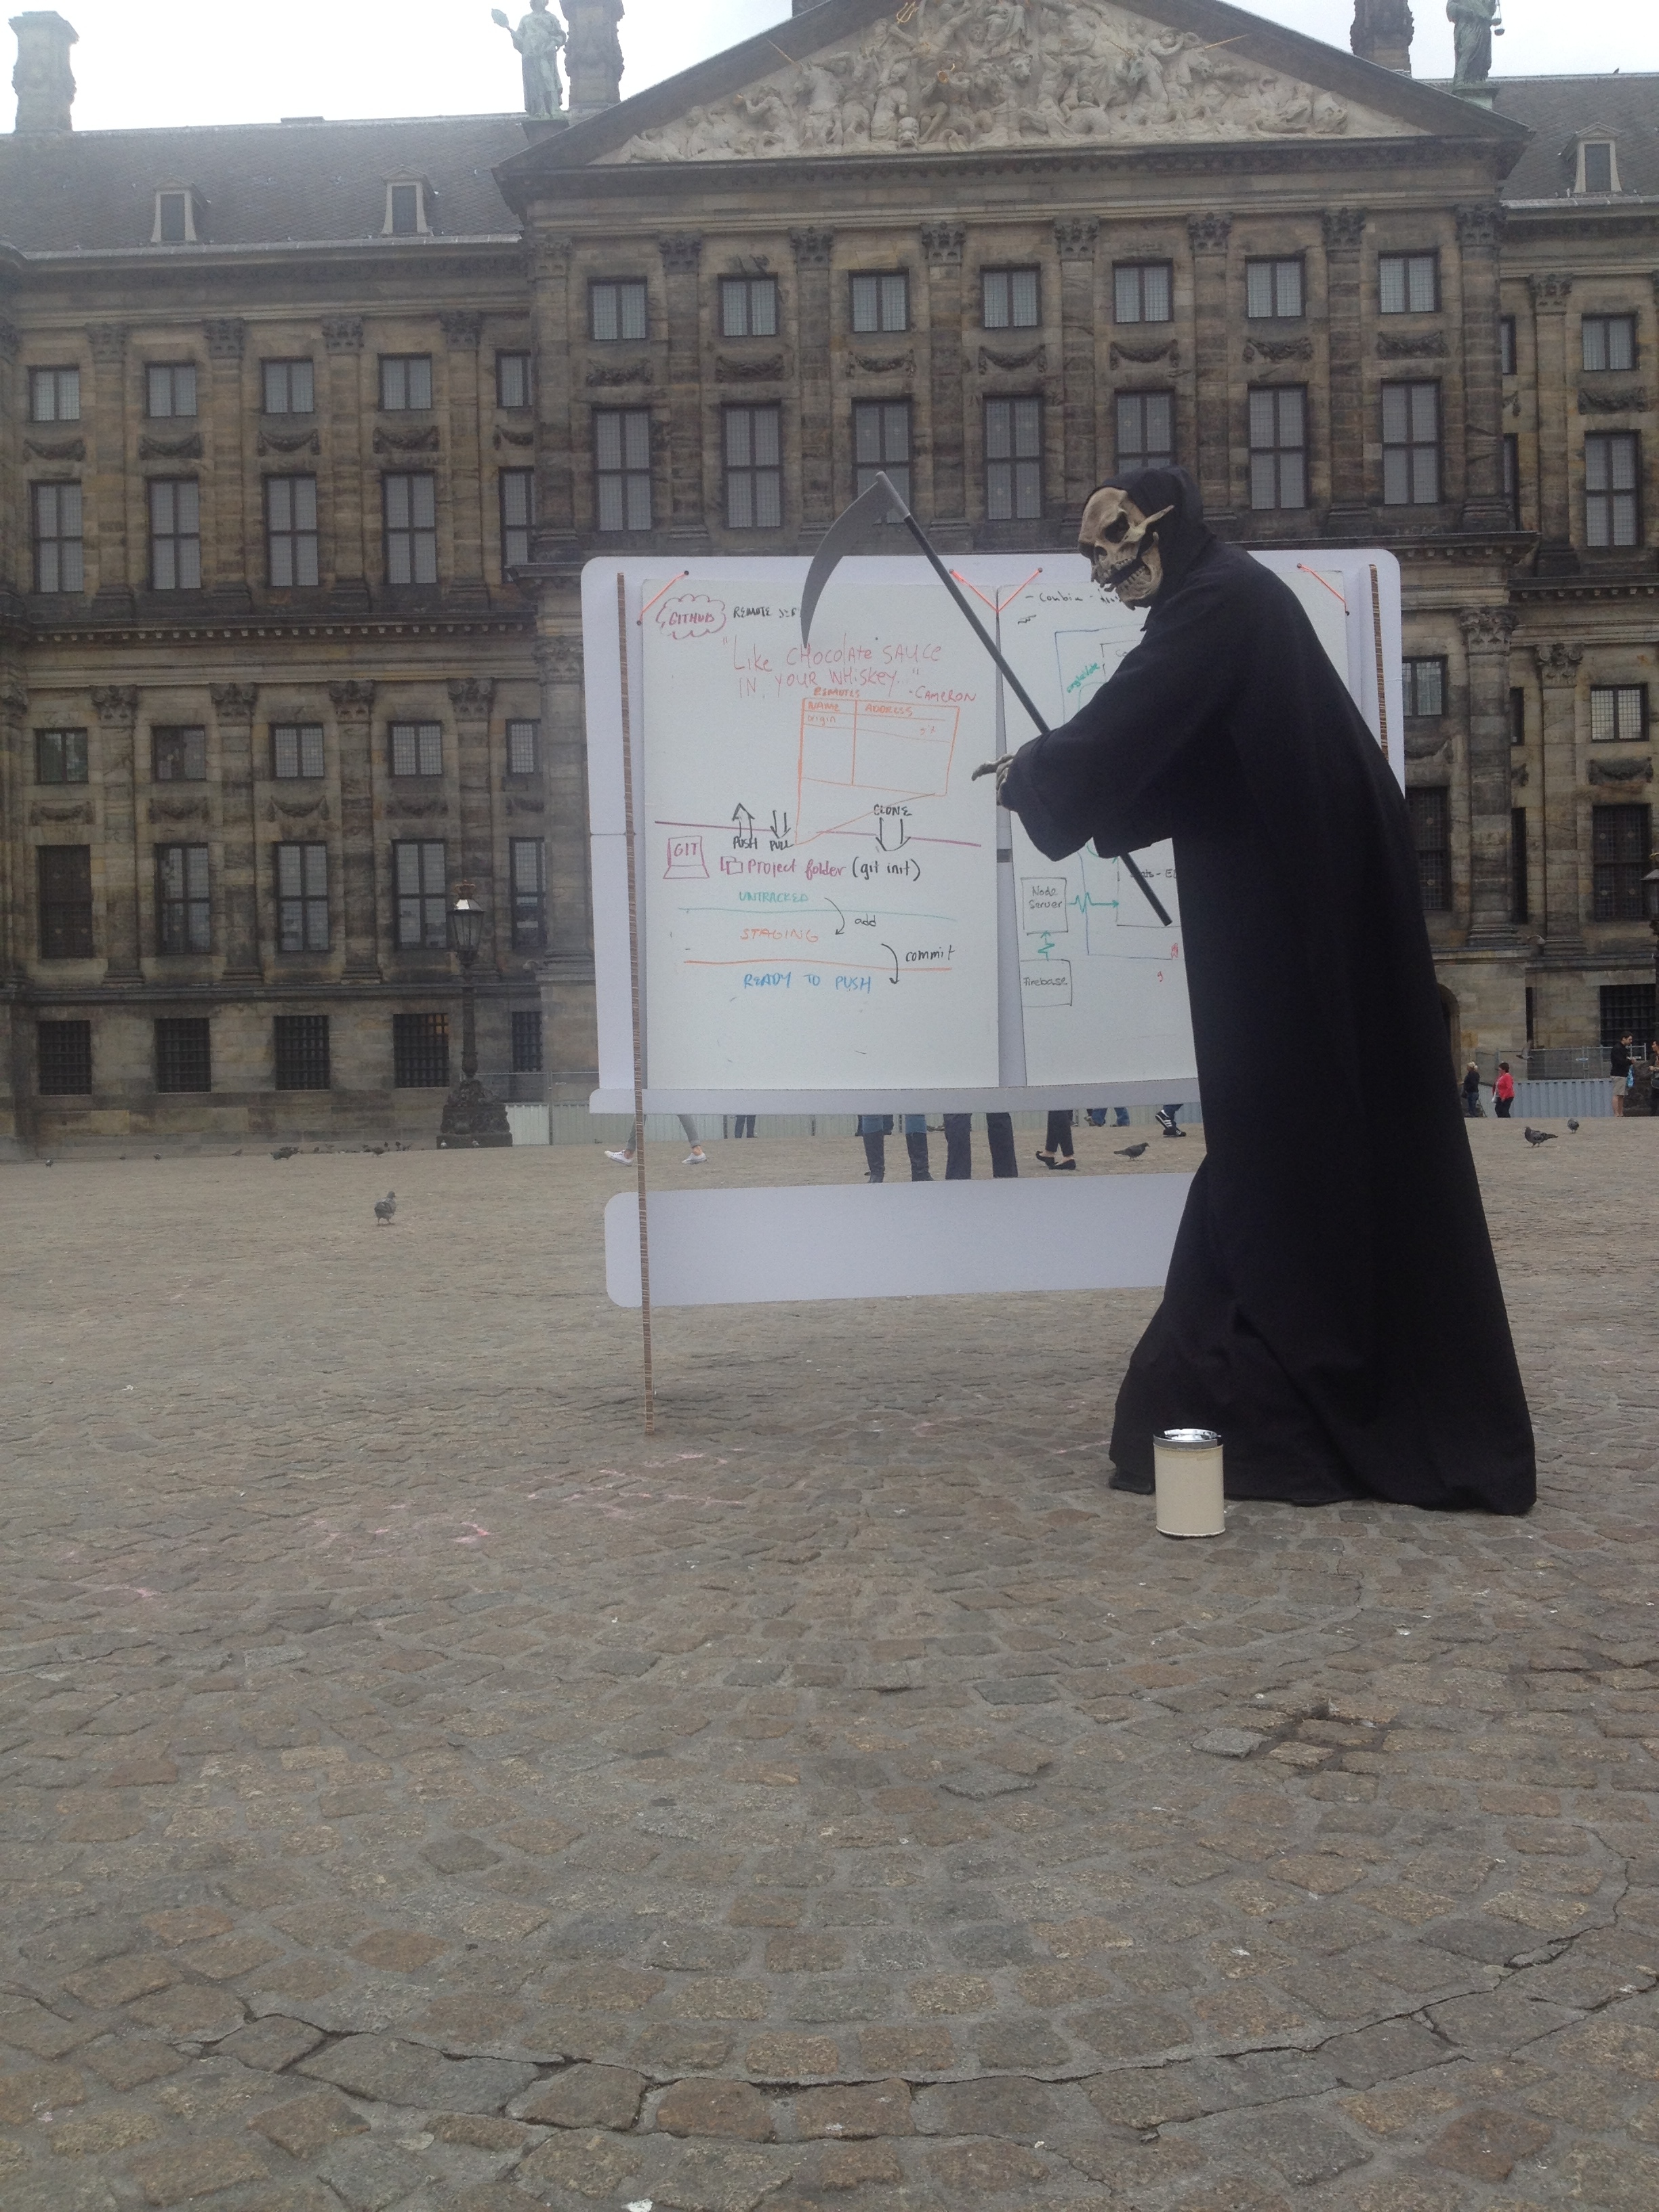 GITHUB REMOTE
"Like CHocolAte SAUCE
IN YOUR WHISKEY."
-CAMERON
REMOTES
NAME ADDRESS
origin git
PUSH PULL CLONE
GIT
Project folder (git init)
UNTRACKED
add
STAGING
commit
READY TO PUSH
- Combin
Node
Server
Firebase
9